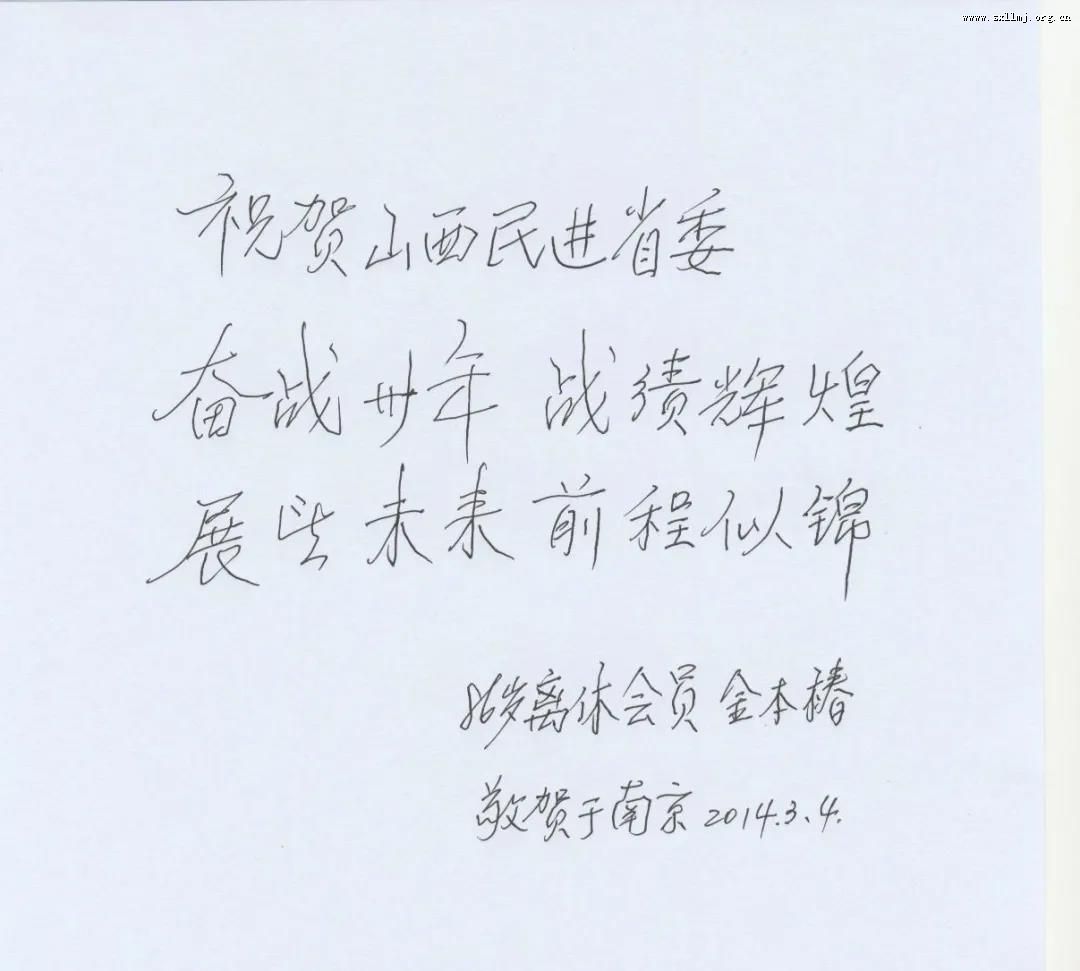 www.sxllmj.org.cn
祝贺山西民进省委
奋战卅年 战绩辉煌
展望未来 前程似锦
86岁离休会员 金本椿
敬贺于南京 2014.3.4.